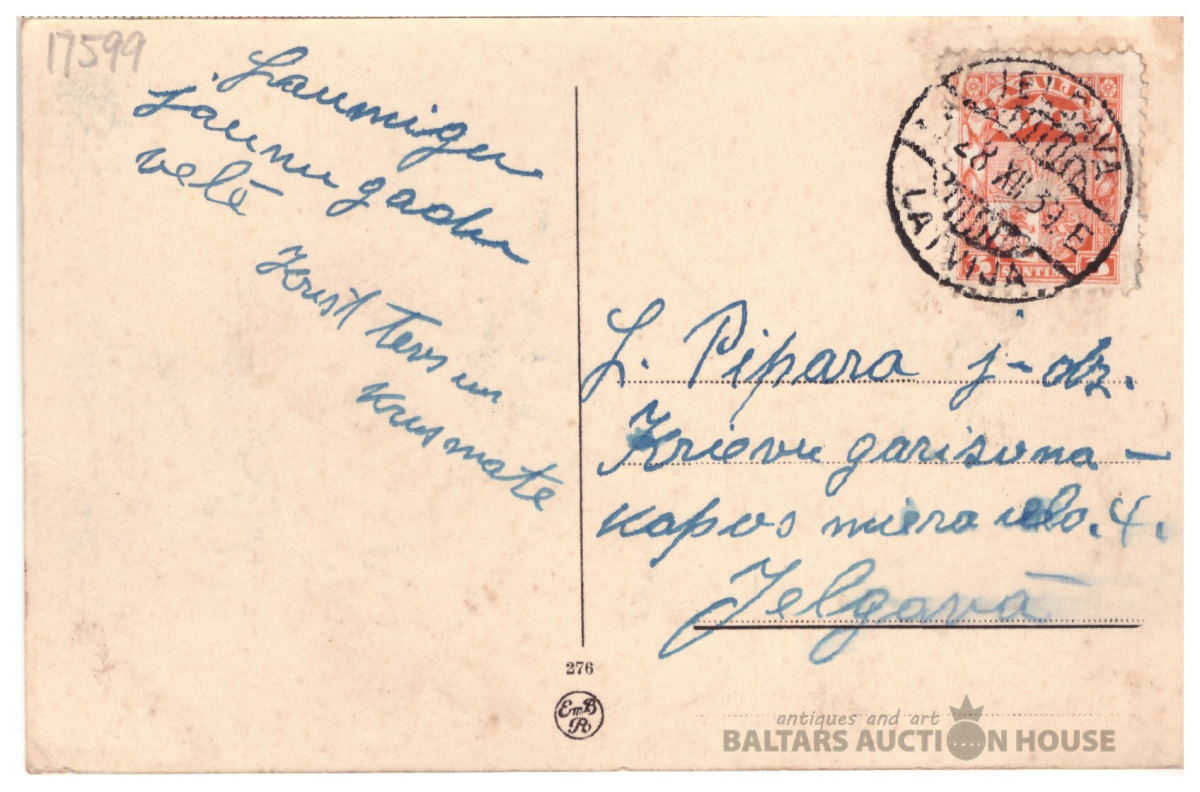 17599
Laimigu
jaunu gadu
vēlē
Krust Tevs un
Krusmate
JELGAVA
28 XII 39. E
LATVIJA
5 SANTIMI 5
L. Pipara j-dz.
Krievu garisona –
kapos miera iela. 4.
Jelgavā
276
EmB
R
antiques and art
BALTARS AUCTION HOUSE